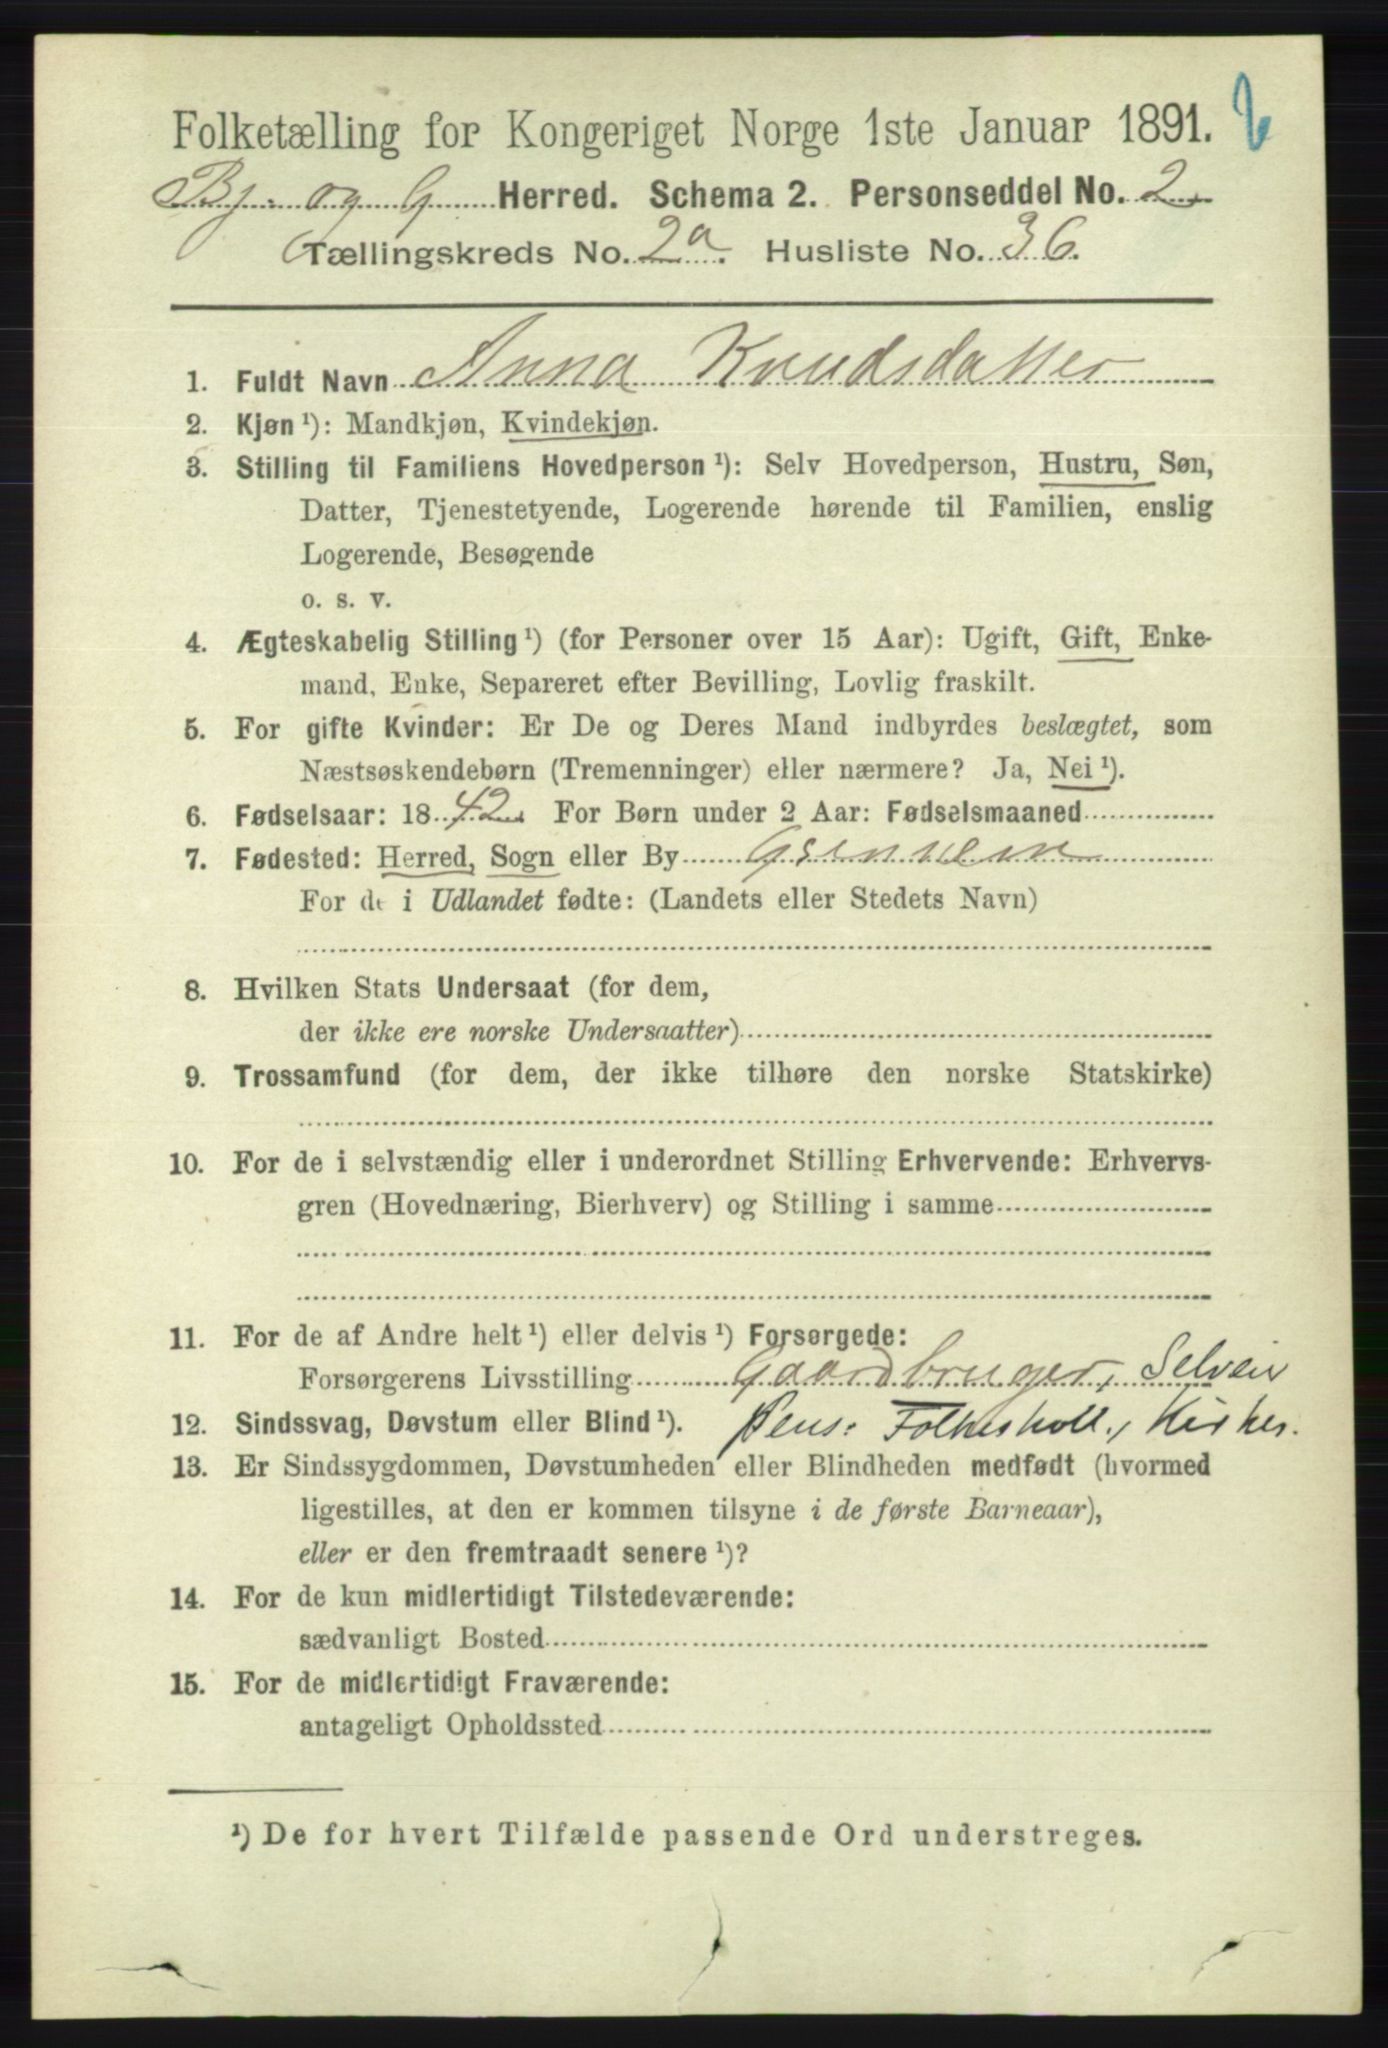 Folketælling for Kongeriget Norge 1ste Januar 1891.
Bj. og G Herred. Schema 2. Personseddel No. 2
Tællingskreds No. 2a. Husliste No. 36.
1. Fuldt Navn Anna Knudsdatter
2. Kjøn ¹): Mandkjøn, Kvindekjøn.
3. Stilling til Familiens Hovedperson ¹): Selv Hovedperson, Hustru, Søn,
Datter, Tjenestetyende, Logerende hørende til Familien, enslig
Logerende, Besøgende
o. s. v.
4. Ægteskabelig Stilling ¹) (for Personer over 15 Aar): Ugift, Gift, Enke-
mand, Enke, Separeret efter Bevilling, Lovlig fraskilt.
5. For gifte Kvinder: Er De og Deres Mand indbyrdes beslægtet, som
Næstsøskendebørn (Tremenninger) eller nærmere? Ja, Nei ¹).
6. Fødselsaar: 1842 For Børn under 2 Aar: Fødselsmaaned
7. Fødested: Herred, Sogn eller By
For de i Udlandet fødte: (Landets eller Stedets Navn)
8. Hvilken Stats Undersaat (for dem,
der ikke ere norske Undersaatter)
9. Trossamfund (for dem, der ikke tilhøre den norske Statskirke)
10. For de i selvstændig eller i underordnet Stilling Erhvervende: Erhvervs-
gren (Hovednæring, Bierhverv) og Stilling i samme
11. For de af Andre helt ¹) eller delvis ¹) Forsørgede:
Forsørgerens Livsstilling Gaardbruger, Selveier
12. Sindssvag, Døvstum eller Blind ¹). Pens: Folkeskoll., Kirkes.
13. Er Sindssygdommen, Døvstumheden eller Blindheden medfødt (hvormed
ligestilles, at den er kommen tilsyne i de første Barneaar),
eller er den fremtraadt senere ¹)?
14. For de kun midlertidigt Tilstedeværende:
sædvanligt Bosted
15. For de midlertidigt Fraværende:
antageligt Opholdssted
¹) De for hvert Tilfælde passende Ord understreges.